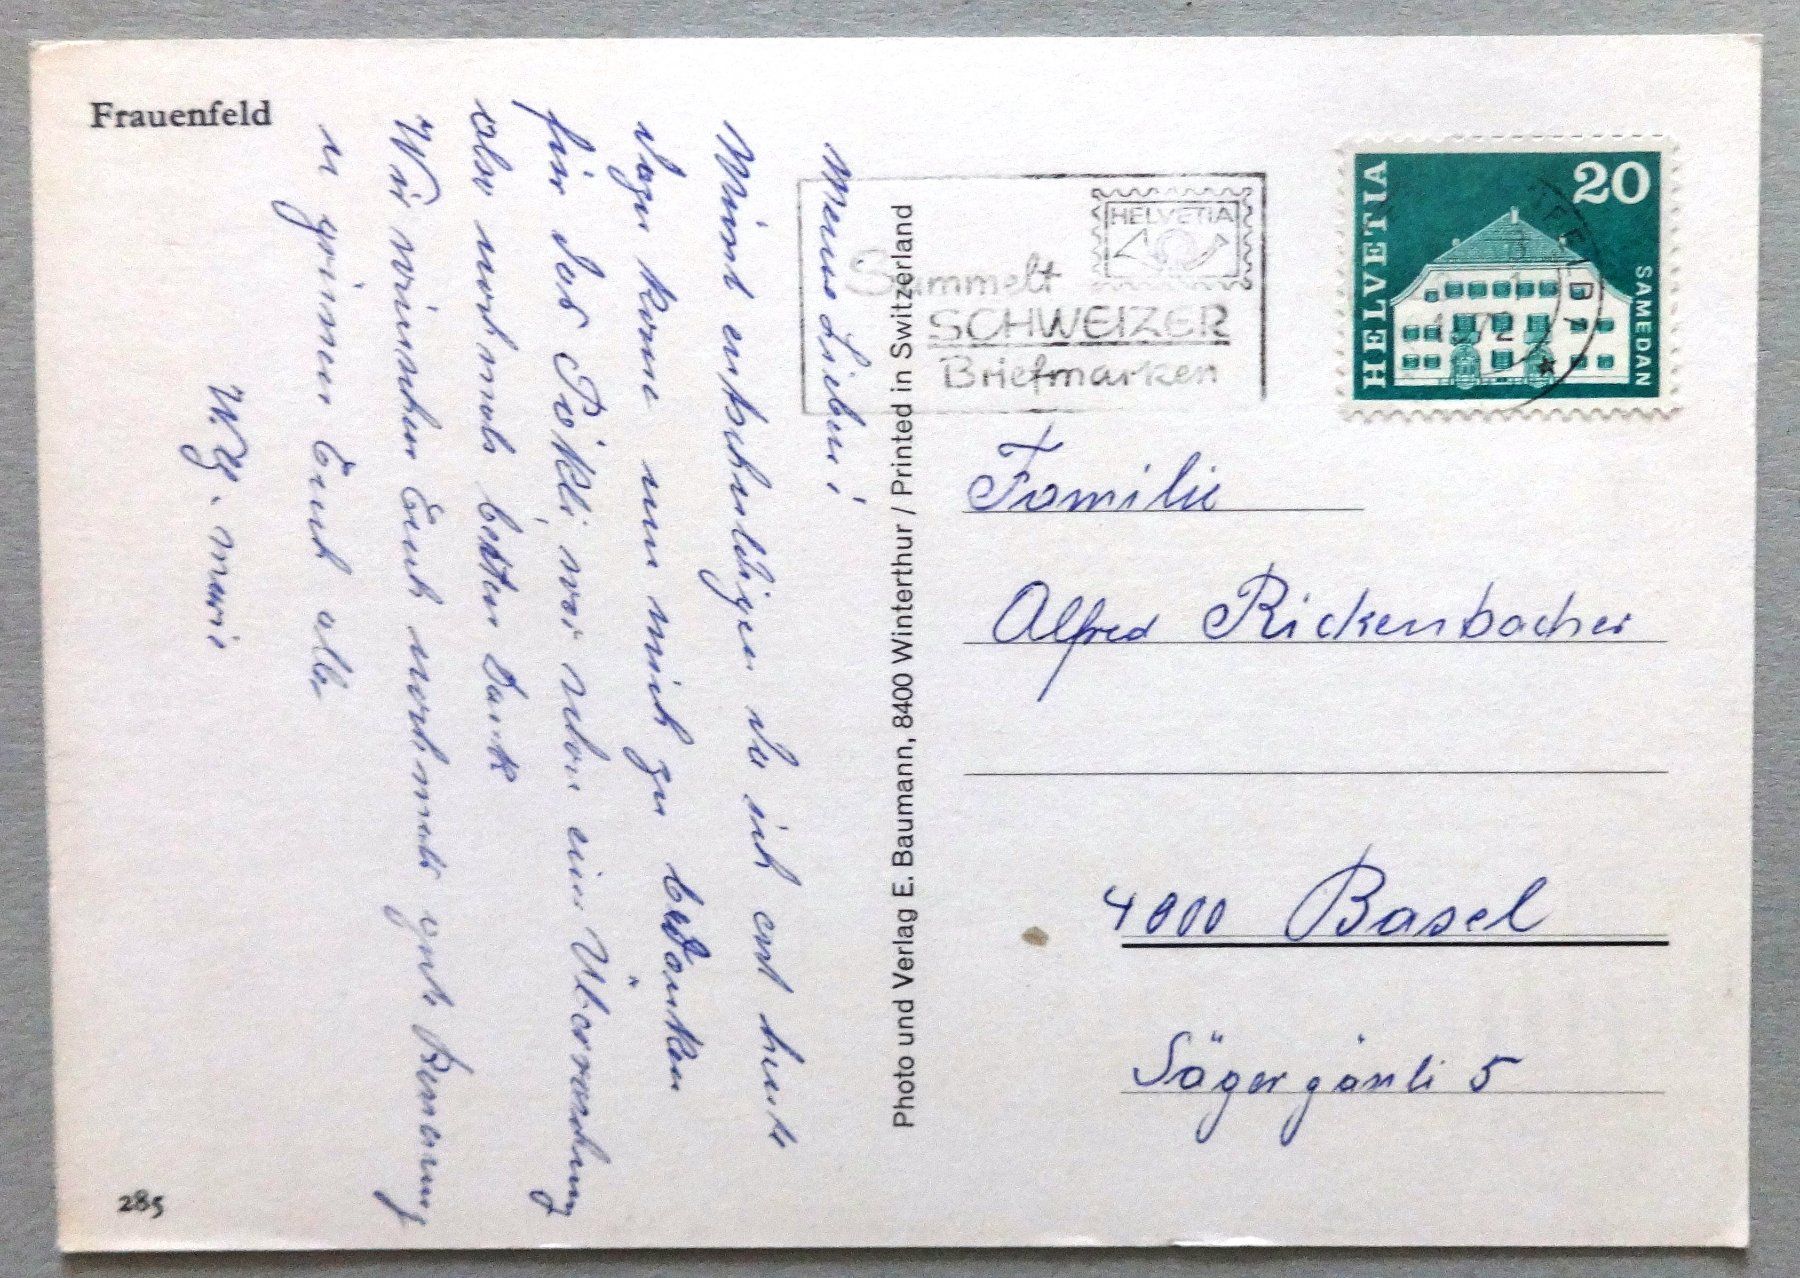 Frauenfeld
Meine Lieben!
Müsst entschuldigen da ich erst heute
dazu kome um mich zu bedanken
für das Päkli, war eine Überraschung
also nochmals besten Dank
Wir wünschen Euch nochmals gute Besserung
u grüssen Euch alle
285
Photo und Verlag E. Baumann, 8400 Winterthur / Printed in Switzerland
HELVETIA
Sammelt
SCHWEIZER
Briefmarken
HELVETIA
20
SAMEDAN
Familie
Alfred Rickenbacher
4000 Basel
Sägergässli 5